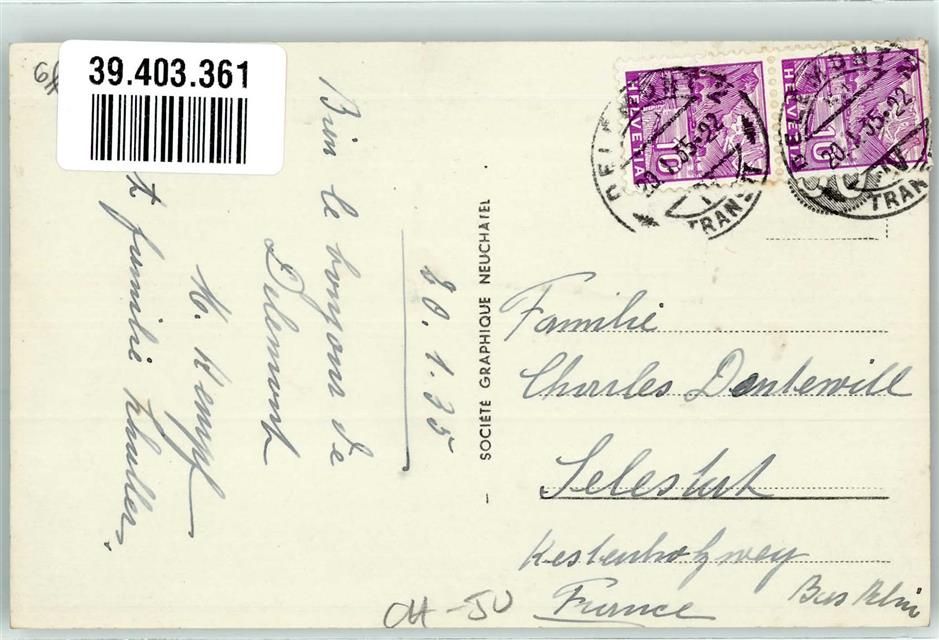 39.403.361
20.1.35
Bien le bonjour de
Delemont
M. Kempf
et famille
SOCIÉTÉ GRAPHIQUE NEUCHATEL
HELVETIA
10
HELVETIA
10
DELÉMONT
20.I.35-22
TRANSIT
DELÉMONT
20.I.35-22
TRANSIT
Familie
Charles Dentewill
Selestat
Kestenholzweg
France
Bas Rhin
CH-JU